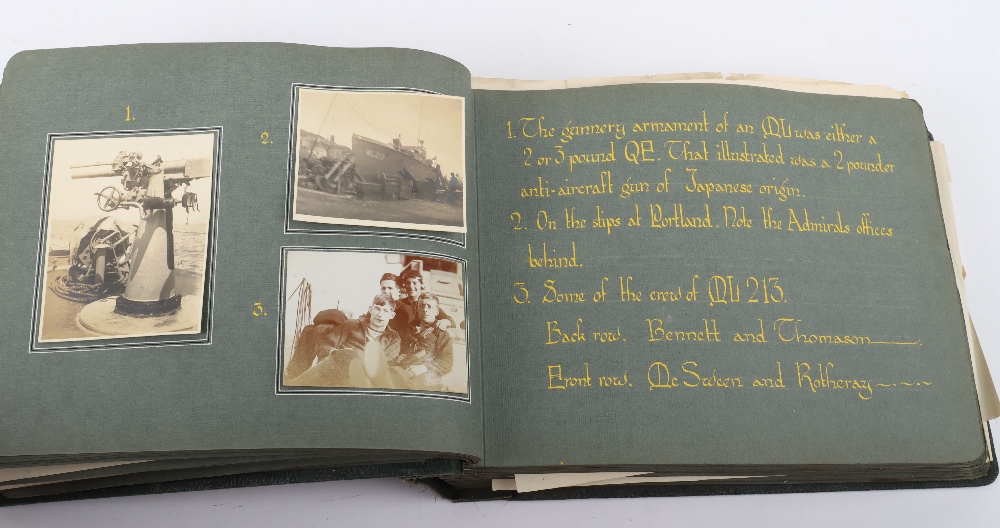 1.
2.
3.
ML213
1. The gunnery armament of an ML was either a
2 or 3 pound QF. That illustrated was a 2 pounder
anti-aircraft gun of Japanese origin.
2. On the slips at Portland. Note the Admirals offices
behind.
3. Some of the crew of ML 213.
Back row. Bennett and Thomason
Front row. Mc Sween and Rotheray